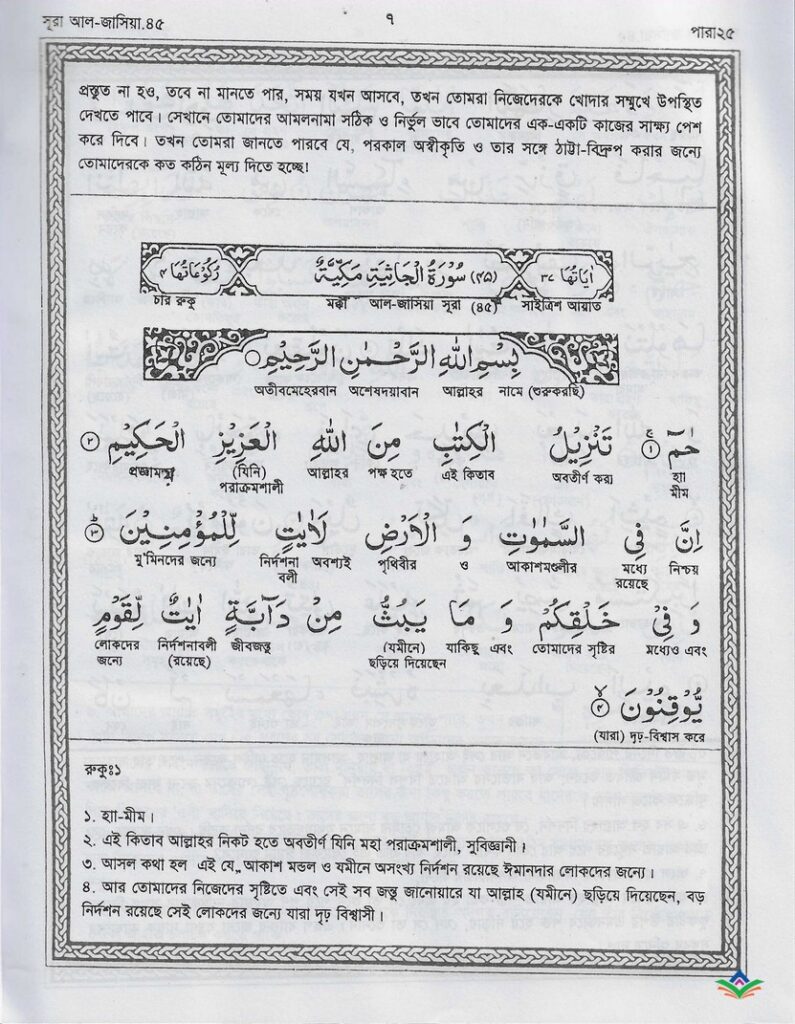 সূরা আল-জাসিয়া.৪৫ ৭ পারা২৫
প্রস্তুত না হও, তবে না মানতে পার, সময় যখন আসবে, তখন তোমরা নিজেদেরকে খোদার সম্মুখে উপস্থিত
দেখতে পাবে। সেখানে তোমাদের আমলনামা সঠিক ও নির্ভুল ভাবে তোমাদের এক-একটি কাজের সাক্ষ্য পেশ
করে দিবে। তখন তোমরা জানতে পারবে যে, পরকাল অস্বীকৃতি ও তার সঙ্গে ঠাট্টা-বিদ্রূপ করার জন্যে
তোমাদেরকে কত কঠিন মূল্য দিতে হচ্ছে!
اٰیَاتُهَا ٣٧ (٤٥) سُوْرَةُ الْجَاثِيَةِ مَكِّيَّةٌ رُكُوْعَاتُهَا ٤
চার রুকু মক্কী আল-জাসিয়া সূরা (৪৫) সাইত্রিশ আয়াত
بِسْمِ اللهِ الرَّحْمٰنِ الرَّحِيْمِ
অতীবমেহেরবান অশেষদয়াবান আল্লাহর নামে (শুরুকরছি)
حٰمٓ ۚ ﴿١﴾ تَنْزِيْلُ الْكِتٰبِ مِنَ اللهِ الْعَزِيْزِ الْحَكِيْمِ ﴿٢﴾
প্রজ্ঞাময় (যিনি) আল্লাহর পক্ষ হতে এই কিতাব অবতীর্ণ করা হা
পরাক্রমশালী মীম
اِنَّ فِي السَّمٰوٰتِ وَ الْاَرْضِ لَاٰيٰتٍ لِّلْمُؤْمِنِيْنَ ﴿٣﴾
মু'মিনদের জন্যে নির্দশনা অবশ্যই পৃথিবীর ও আকাশমণ্ডলীর মধ্যে নিশ্চয়
বলী রয়েছে
وَ فِيْ خَلْقِكُمْ وَ مَا يَبُثُّ مِنْ دَآبَّةٍ اٰيٰتٌ لِّقَوْمٍ
লোকদের নির্দশনাবলী জীবজন্তু (যমীনে) যাকিছু এবং তোমাদের সৃষ্টির মধ্যেও এবং
জন্যে (রয়েছে) ছড়িয়ে দিয়েছেন
يُّوْقِنُوْنَ ﴿٤﴾
(যারা) দৃঢ়-বিশ্বাস করে
রুকুঃ১
১. হাা-মীম।
২. এই কিতাব আল্লাহর নিকট হতে অবতীর্ণ যিনি মহা পরাক্রমশালী, সুবিজ্ঞানী।
৩. আসল কথা হল এই যে, আকাশ মন্ডল ও যমীনে অসংখ্য নির্দশন রয়েছে ঈমানদার লোকদের জন্যে।
৪. আর তোমাদের নিজেদের সৃষ্টিতে এবং সেই সব জন্তু জানোয়ারে যা আল্লাহ (যমীনে) ছড়িয়ে দিয়েছেন, বড়
নির্দশন রয়েছে সেই লোকদের জন্যে যারা দৃঢ় বিশ্বাসী।